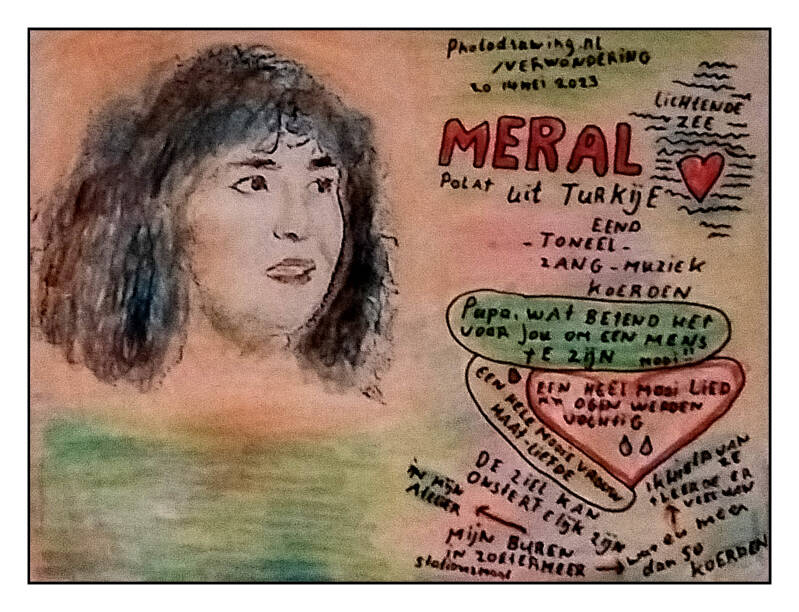 Photodrawing.nl
/VERWONDERING
20 14 MEI 2023
LICHTENDE
ZEE
MERAL
Polat uit TURKIJE
EEND
- TONEEL -
ZANG - MUZIEK
KOERDEN
Papa, WAT BETEND HET
VOOR Jou OM EEN MENS
TE ZIJN MOOI!!
EEN HELE MOOIE VROUW
HAAT-LIEFDE
EEN HEEL MOOI LIED
OGEN WERDEN
VOCHTIG
DE ZIEL KAN
ONSTERFELIJK ZIJN
IN MIJN
ATELIER
MIJN BUREN
IN ZOETERMEER
stationsstraat
waren meer
dan 50
KOERDEN
IK HIELD VAN
ZE
LEERDE ER
VEEL VAN